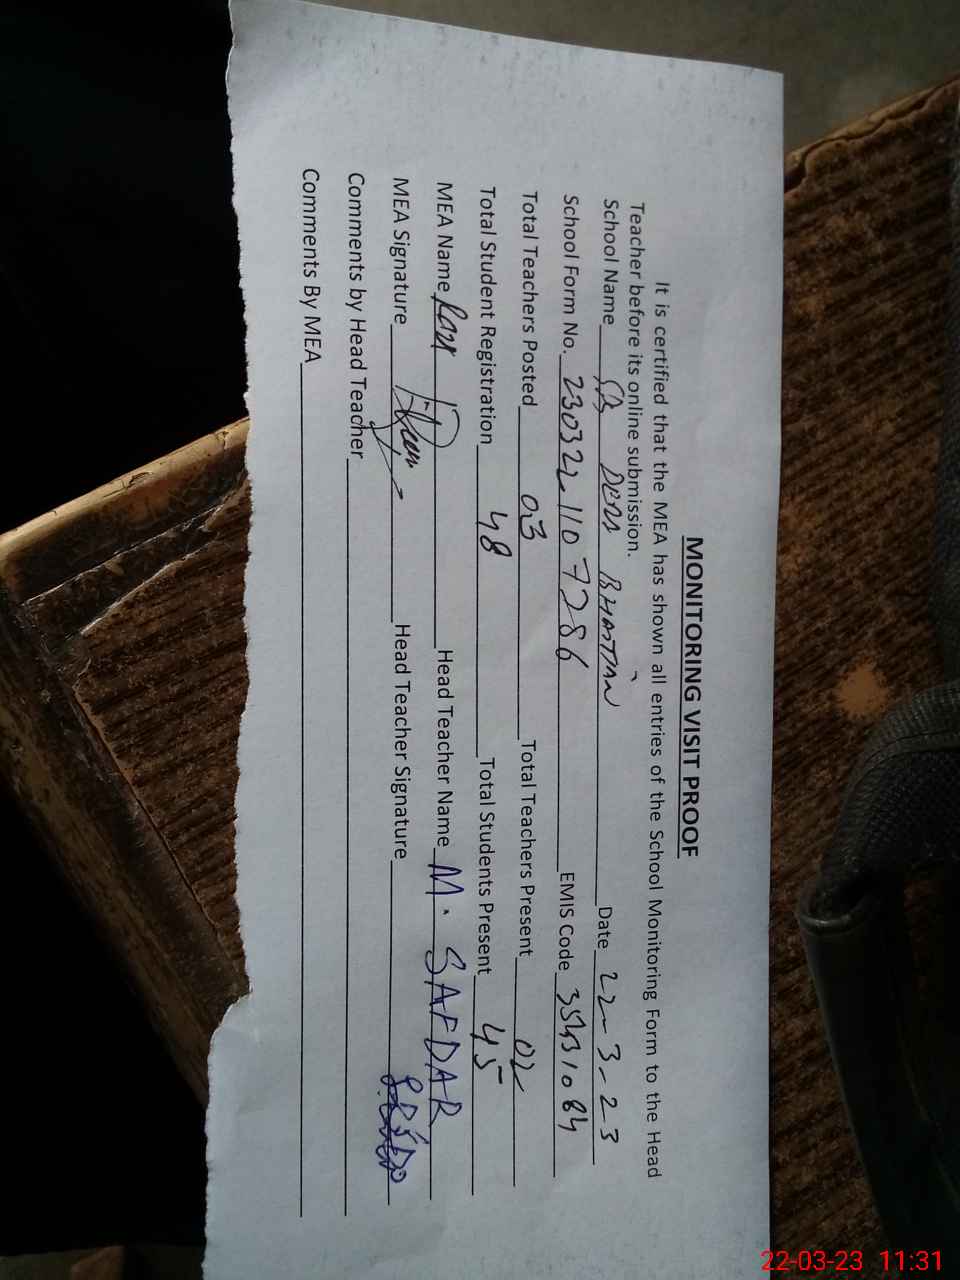 MONITORING VISIT PROOF
It is certified that the MEA has shown all entries of the School Monitoring Form to the Head
Teacher before its online submission.
School Name DERA BHATTIAN Date 22-3-23
School Form No. 2303221107286 EMIS Code
Total Teachers Posted 03 Total Teachers Present 02
Total Student Registration 48 Total Students Present 45
MEA Name Head Teacher Name M. SAFDAR
MEA Signature Head Teacher Signature
Comments by Head Teacher
Comments By MEA
22-03-23 11:31